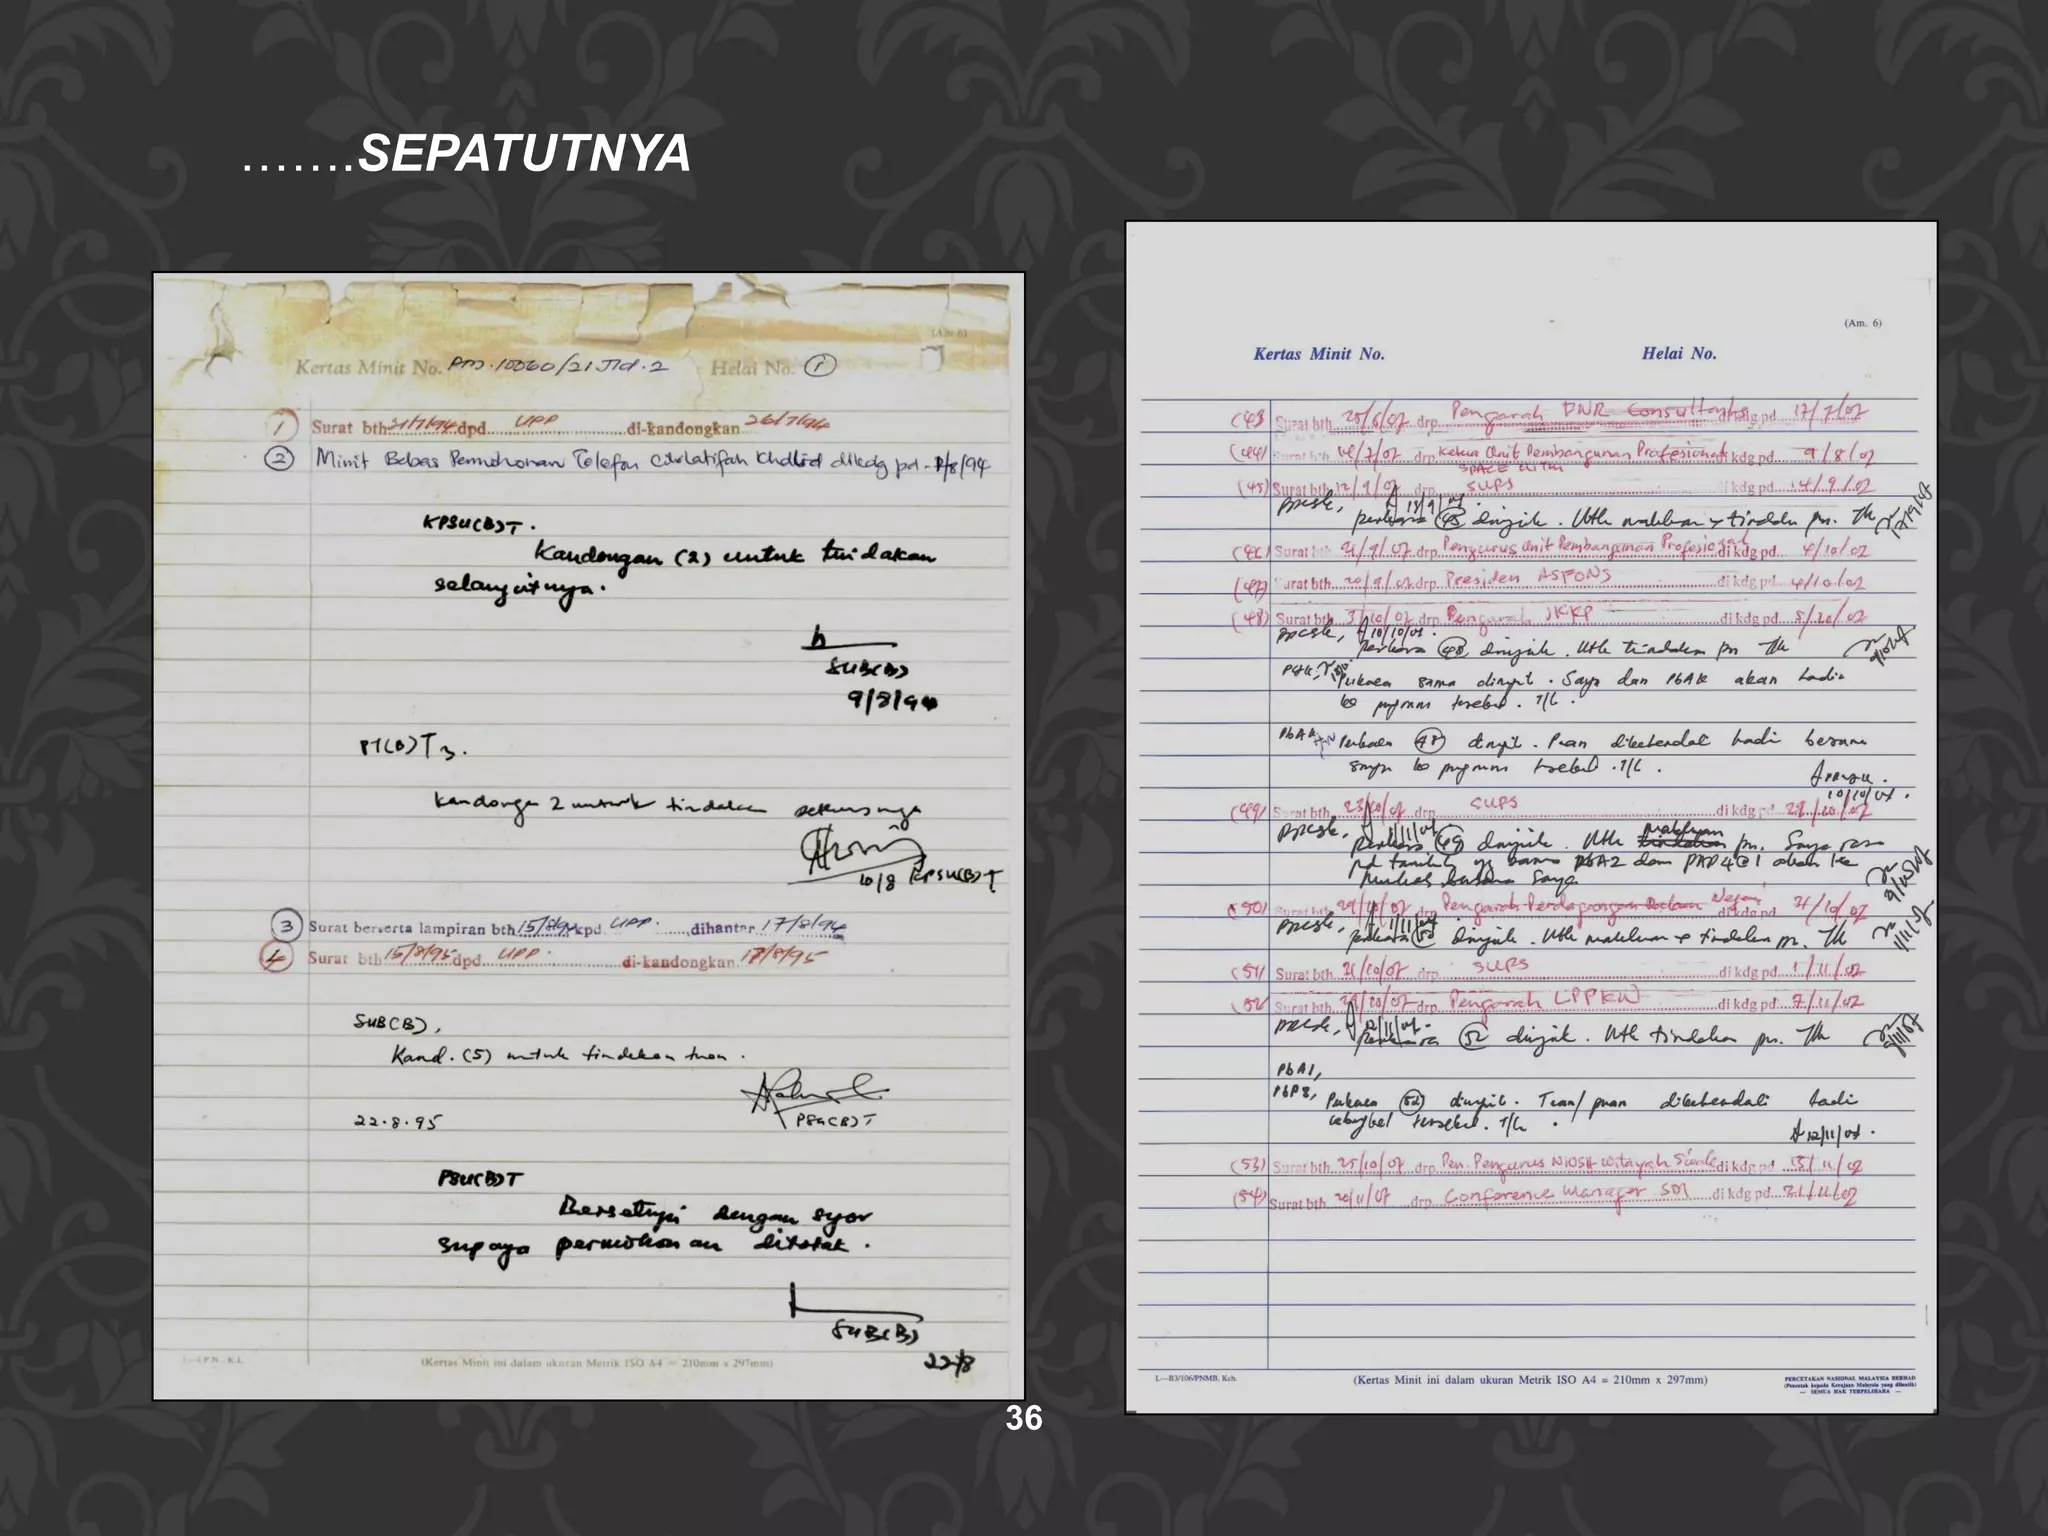 .......SEPATUTNYA
(Am 6)
Kertas Minit No. 10060/21 Jld. 2 Helai No. 1
1 Surat bth 21/7/94 dpd UPP di-kandongkan 26/7/94
2 Minit Bebas Permohonan Telefon Cik Latifah dikdg pd
KPSU(B)T.
Kandongan (2) untuk tindakan
selanjutnya.
SUB(B)
9/8/94
PT(B)T3.
kandongan 2 untuk tindakan seterusnya
10/8 KPSU(B)T
3 Surat berserta lampiran bth 15/8/94 kpd UPP. dihantar 17/8/94
4 Surat bth 15/8/95 dpd UPP. di-kandongkan 17/8/95
SUB(B),
Kand. (5) untuk tindakan tuan.
22.8.95 PSU(B)T
PSU(B)T
Bersetuju dengan syor
supaya permohonan ditolak.
SUB(B)
22/8
(Kertas Minit ini dalam ukuran Metrik ISO A4 = 210mm x 297mm)
(Am. 6)
Kertas Minit No. Helai No.
(43) Surat bth 25/6/07 drp Pengarah DNR Consultants di kdg pd 17/7/07
(44) Surat bth drp Ketua Unit Pembangunan Profesional di kdg pd 9/8/07
SPACE UiTM
(45) Surat bth 12/9/07 drp SUPS di kdg pd 14/9/07
perkara 45 dirujuk. Utk makluman + tindakan pn. Tk
(46) Surat bth 21/9/07 drp Pengurus Unit Pembangunan Profesional di kdg pd 4/10/07
(47) Surat bth 20/9/07 drp Presiden ASPONS di kdg pd 4/10/07
(48) Surat bth 3/10/07 drp Pengarah JKKP di kdg pd
Perkara 48 dirujuk. Utk tindakan pn Tk
Perkara sama dirujuk. Saya dan PbAK akan hadir
ke program tersebut. T/k.
Perkara 48 dirujuk. Puan dikehendaki hadir bersama
saya ke program tersebut. T/k.
10/10/07.
(49) Surat bth 23/10/07 drp SUPS di kdg pd
perkara 49 dirujuk. Utk makluman pn. Saya rasa
(50) Surat bth drp di kdg pd
perkara 50 dirujuk. Utk makluman + tindakan pn. Tk
(51) Surat bth drp SUPS di kdg pd 1/11/07
(52) Surat bth drp Pengarah LPPKN di kdg pd 7/11/07
Perkara 52 dirujuk. Utk tindakan pn. Tk
PbA1,
Perkara 52 dirujuk. Tuan/puan dikehendaki hadir
tersebut. T/k.
12/11/07.
(53) Surat bth 25/10/07 drp Pen. Pengurus NIOSH Wilayah di kdg pd
(54) Surat bth 20/11/07 drp Conference Manager di kdg pd 21/11/07
L—B3/106/PNMB, Kch. (Kertas Minit ini dalam ukuran Metrik ISO A4 = 210mm x 297mm) PERCETAKAN NASIONAL MALAYSIA BERHAD
(Pencetak kepada Kerajaan Malaysia yang dilantik)
— SEMUA HAK TERPELIHARA —
36